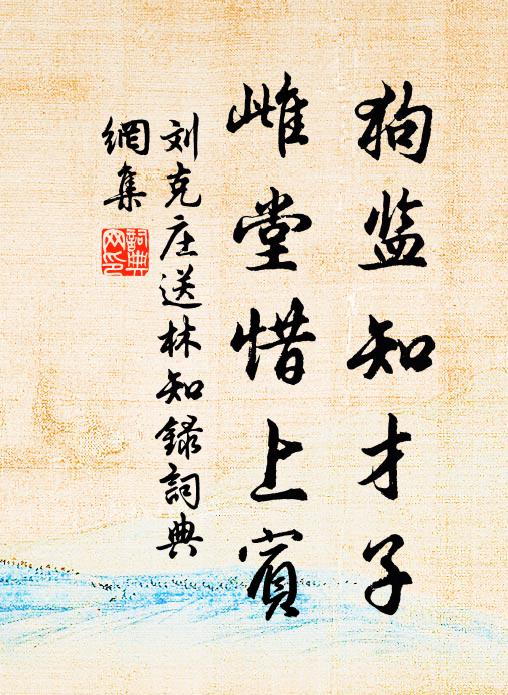 狗监知才子
雌堂惜上宾
刘克庄送林知録詞典
網集
詞典
网印